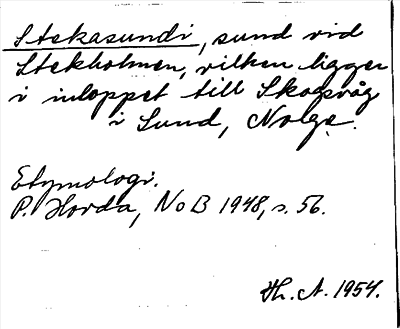 Stekasundi, sund vid
Stekholmen, vilken ligger
i inloppet till Skogsvåg
i Sund, Nolge.
Etymologi.
P. Hovda, NoB 1948, s. 56.
Th. A. 1954.